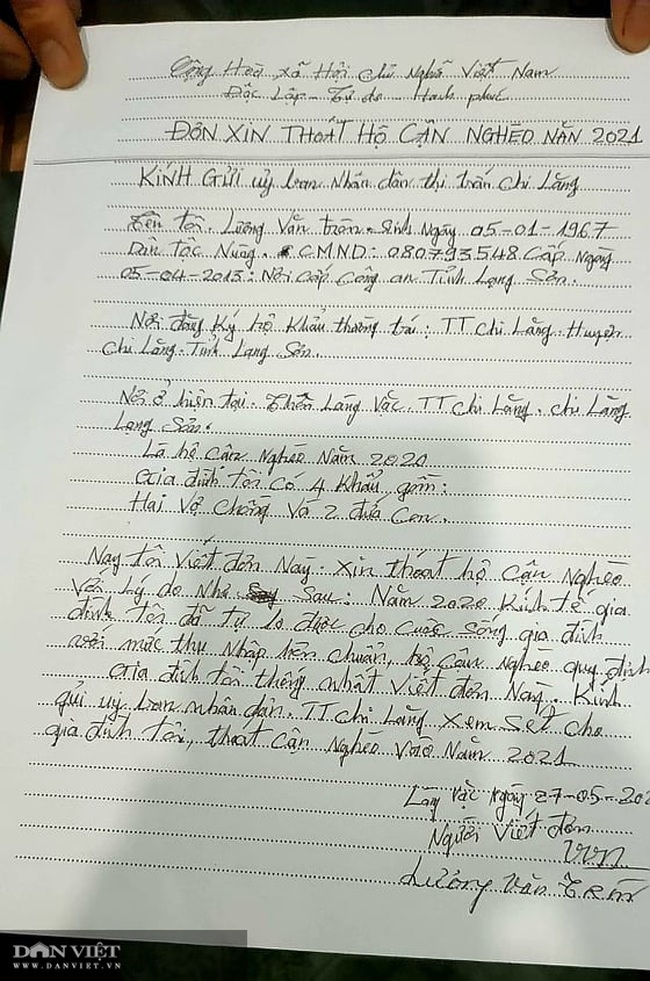 Cộng Hoà xã Hội Chủ Nghĩa Việt Nam
Độc Lập - Tự do - Hạnh phúc
ĐƠN XIN THOÁT HỘ CẬN NGHÈO NĂM 2021
KÍNH GỬI uỷ ban Nhân dân thị trấn Chi Lăng
Tên tôi. Lương Văn trôn. Sinh Ngày 05-01-1967
Dân tộc Nùng. CMND: 080793548 Cấp Ngày
05-04-2013. Nơi cấp Công an Tỉnh Lạng Sơn.
Nơi đăng ký hộ khẩu thường trú: TT Chi Lăng Huyện
Chi Lăng. Tỉnh Lạng Sơn.
Nơi ở hiện tại. Thôn Làng Vặc. TT Chi Lăng. Chi Lăng
Lạng Sơn.
Là hộ cận Nghèo Năm 2020
Gia đình tôi có 4 khẩu gồm:
Hai Vợ chồng Và 2 đứa Con.
Nay tôi Viết đơn Này. Xin thoát hộ Cận Nghèo
Với Lý do Như Sau: Năm 2020 Kinh tế gia
đình tôi đã tự lo được cho cuộc sống gia đình
với mức thu nhập trên chuẩn, hộ cận nghèo quy định
Gia đình tôi thống nhất Viết đơn Này. Kính
gửi uỷ ban nhân dân. TT Chi Lăng Xem Sét cho
gia đình tôi, thoát Cận Nghèo Vào Năm 2021
Làng Vặc Ngày 27-05-202
Người Viết đơn
Lương Văn
DÂN VIỆT
WWW.DANVIET.VN